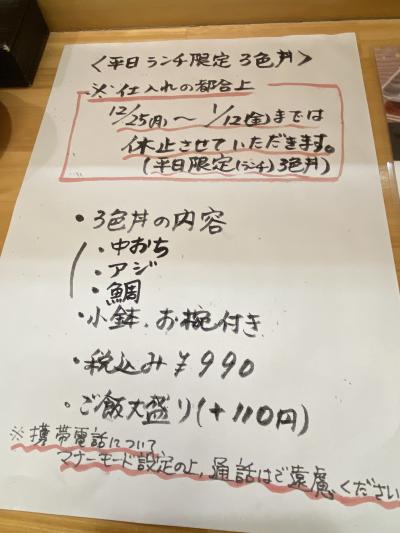 〈平日ランチ限定 3色丼〉
※仕入れの都合上
12/25(月)〜1/12(金)までは
休止させていただきます。
(平日限定(ランチ)3色丼)
・3色丼の内容
・中おち
・アジ
・鯛
・小鉢、お椀付き
・税込み¥990
・ご飯大盛り(+110円)
※携帯電話について
マナーモード設定の上、通話はご遠慮ください